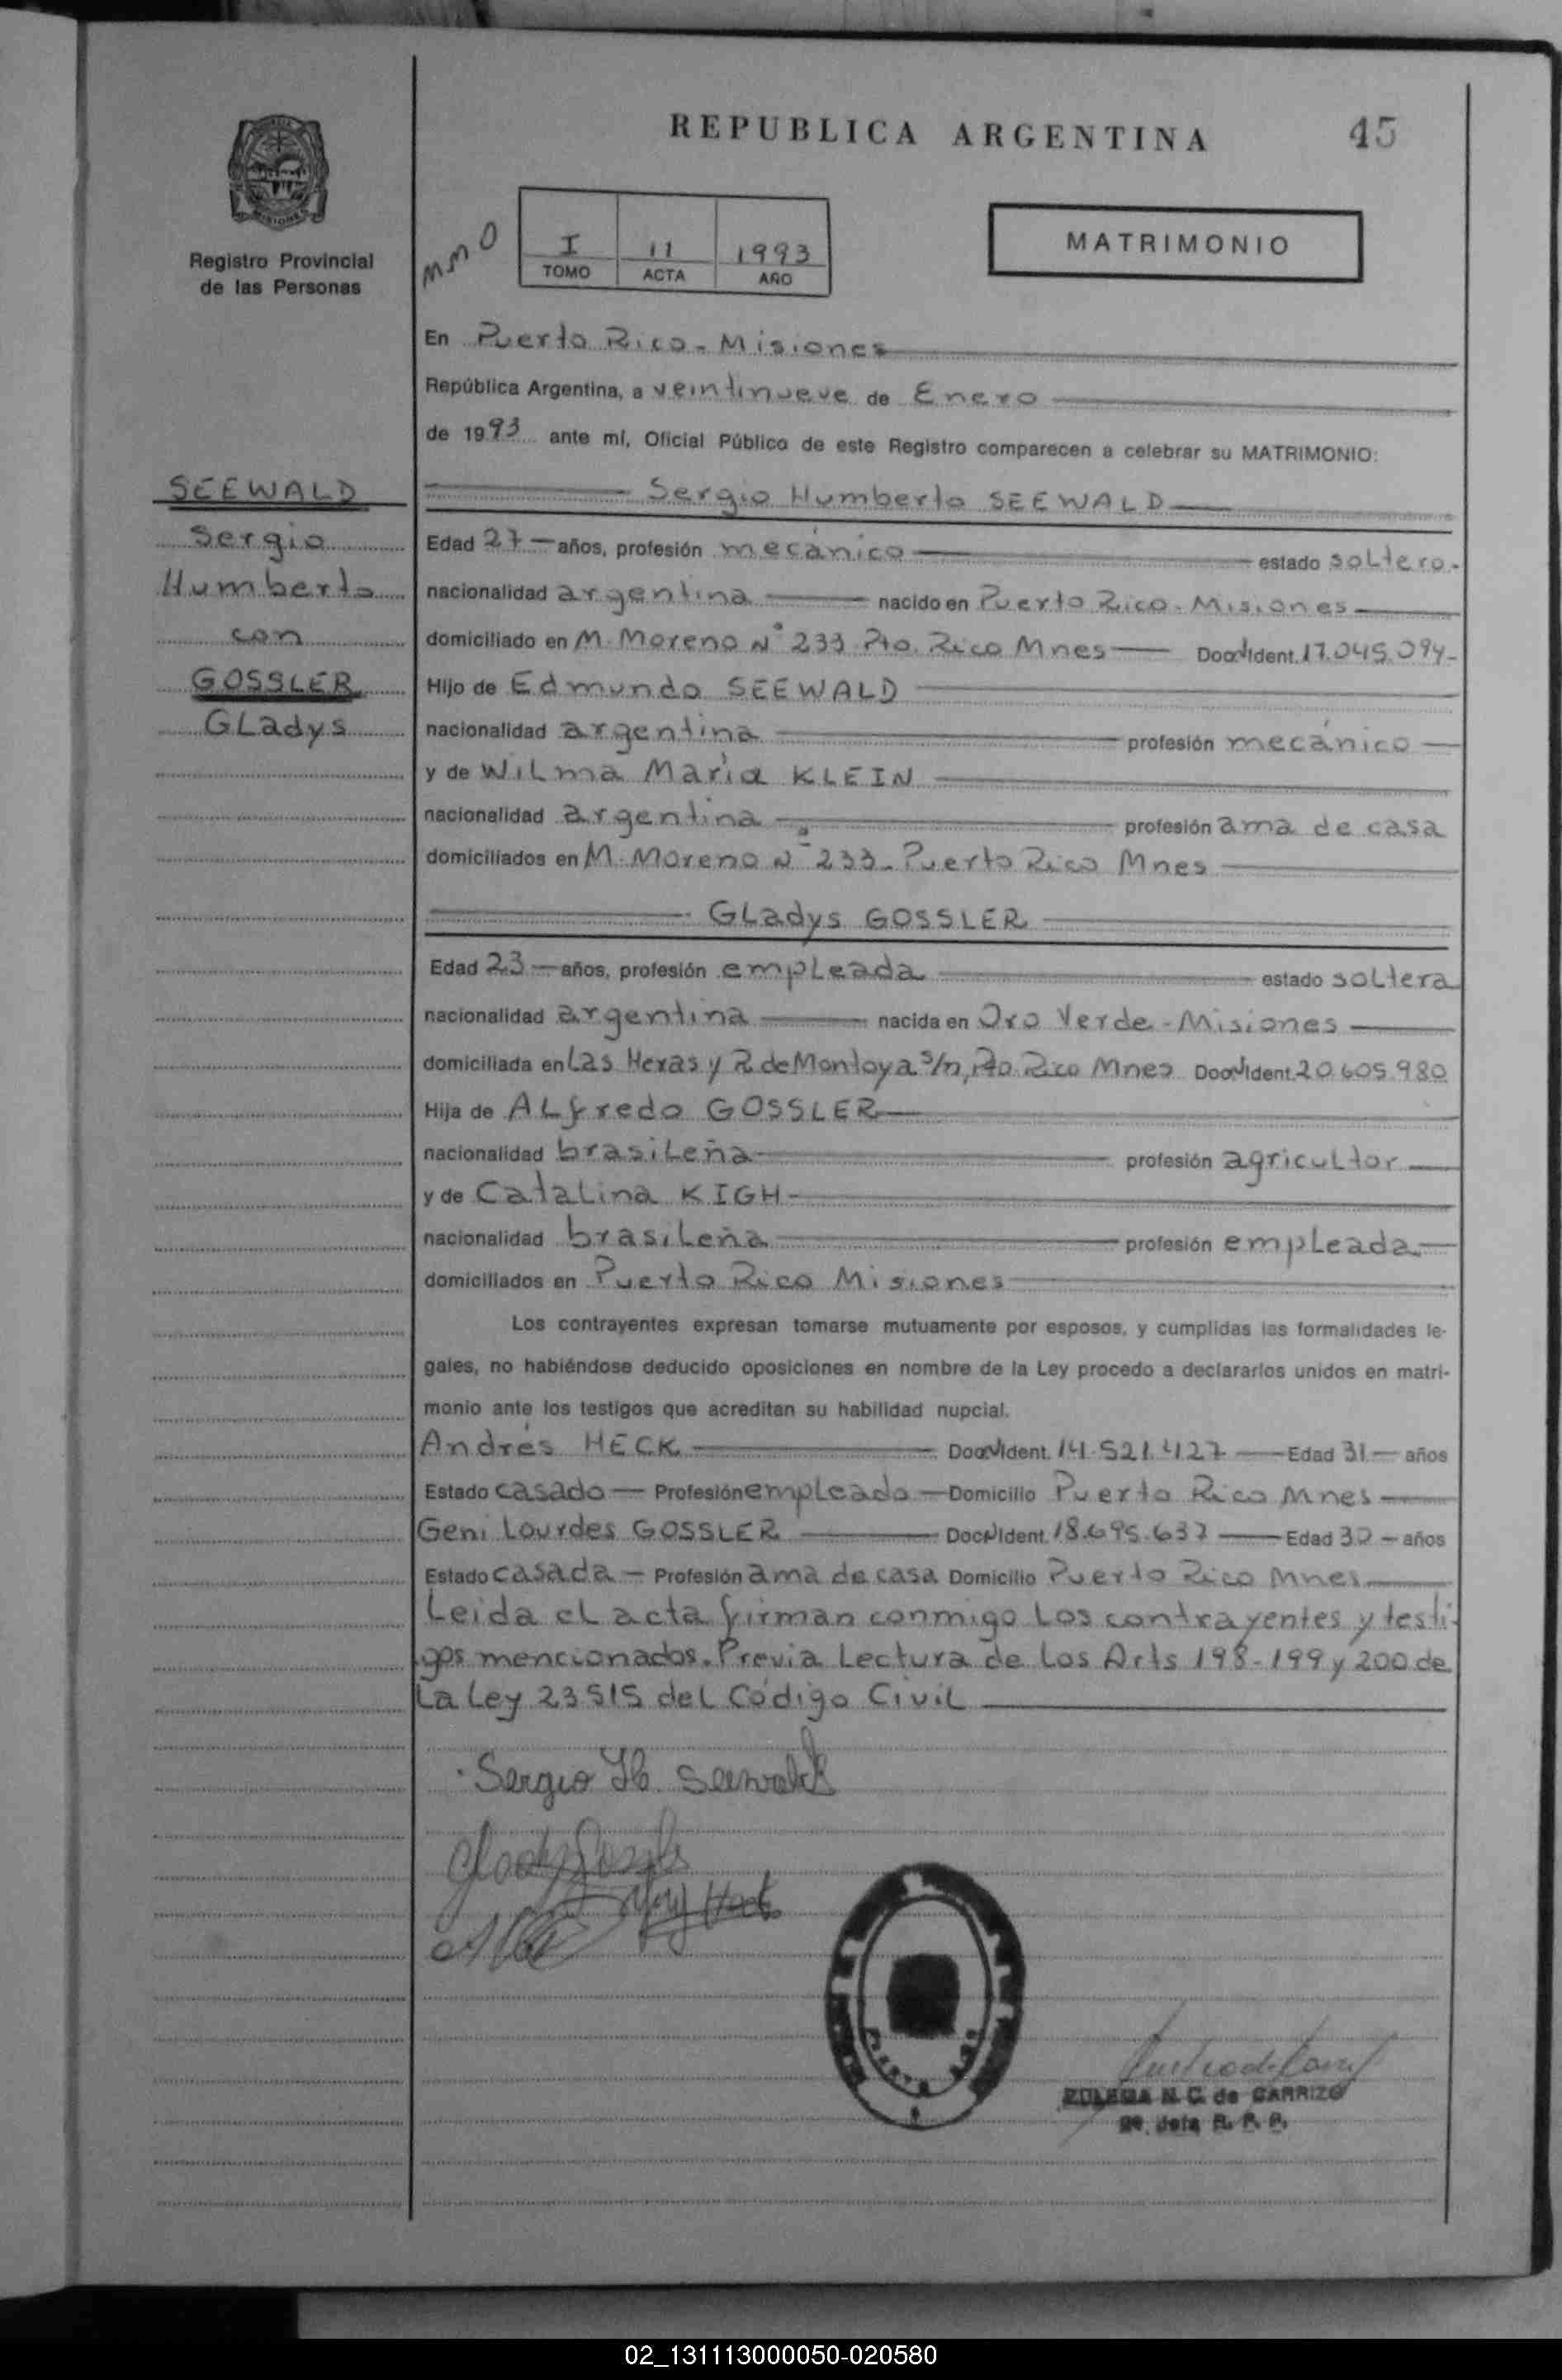 REPUBLICA ARGENTINA
45
Registro Provincial
de las Personas
I 11 1993
TOMO ACTA AÑO
MATRIMONIO
En Puerto Rico - Misiones
República Argentina, a veintinueve de Enero
de 1993 ante mí, Oficial Público de este Registro comparecen a celebrar su MATRIMONIO:
SEEWALD
Sergio
Humberto
con
GOSSLER
Gladys
Sergio Humberto SEEWALD
Edad 27 años, profesión mecánico estado soltero.
nacionalidad argentina nacido en Puerto Rico - Misiones
domiciliado en M. Moreno N° 233 Pto. Rico Mnes Doc N Ident. 17.045.094
Hijo de Edmundo SEEWALD
nacionalidad argentina profesión mecánico
y de Wilma María KLEIN
nacionalidad argentina profesión ama de casa
domiciliados en M. Moreno N° 233 - Puerto Rico Mnes
Gladys GOSSLER
Edad 23 años, profesión empleada estado soltera
nacionalidad argentina nacida en Oro Verde - Misiones
domiciliada en Las Heras y R. de Montoya s/n, Pto. Rico Mnes Doc N Ident. 20.605.980
Hija de Alfredo GOSSLER
nacionalidad brasileña profesión agricultor
y de Catalina KIGH
nacionalidad brasileña profesión empleada
domiciliados en Puerto Rico Misiones
Los contrayentes expresan tomarse mutuamente por esposos, y cumplidas las formalidades le-
gales, no habiéndose deducido oposiciones en nombre de la Ley procedo a declararlos unidos en matri-
monio ante los testigos que acreditan su habilidad nupcial.
Andrés HECK Doc N Ident. 14.521.427 Edad 31 años
Estado casado Profesión empleado Domicilio Puerto Rico Mnes
Geni Lourdes GOSSLER Doc N Ident. 18.695.637 Edad 30 años
Estado casada Profesión ama de casa Domicilio Puerto Rico Mnes
Leida el acta firman conmigo los contrayentes y testi-
gos mencionados. Previa Lectura de los Arts 198-199 y 200 de
La Ley 23515 del Código Civil
Sergio H. Seewald
N. C. de CARRIZO
R. P. P.
02_131113000050-020580